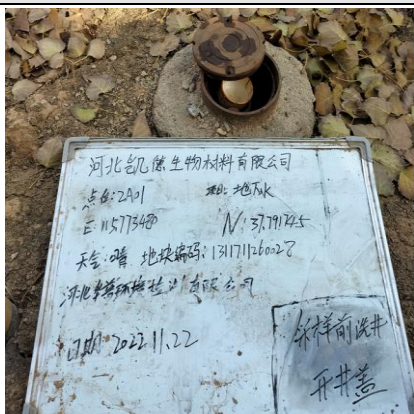 河北凯德生物材料有限公司
点位:2A01 类型:地下水
E:115.773480 N:37.791745
天气:晴 地块编码:1311711260028
河北 环境检测有限公司
日期 2022.11.22
采样前洗井
开井盖